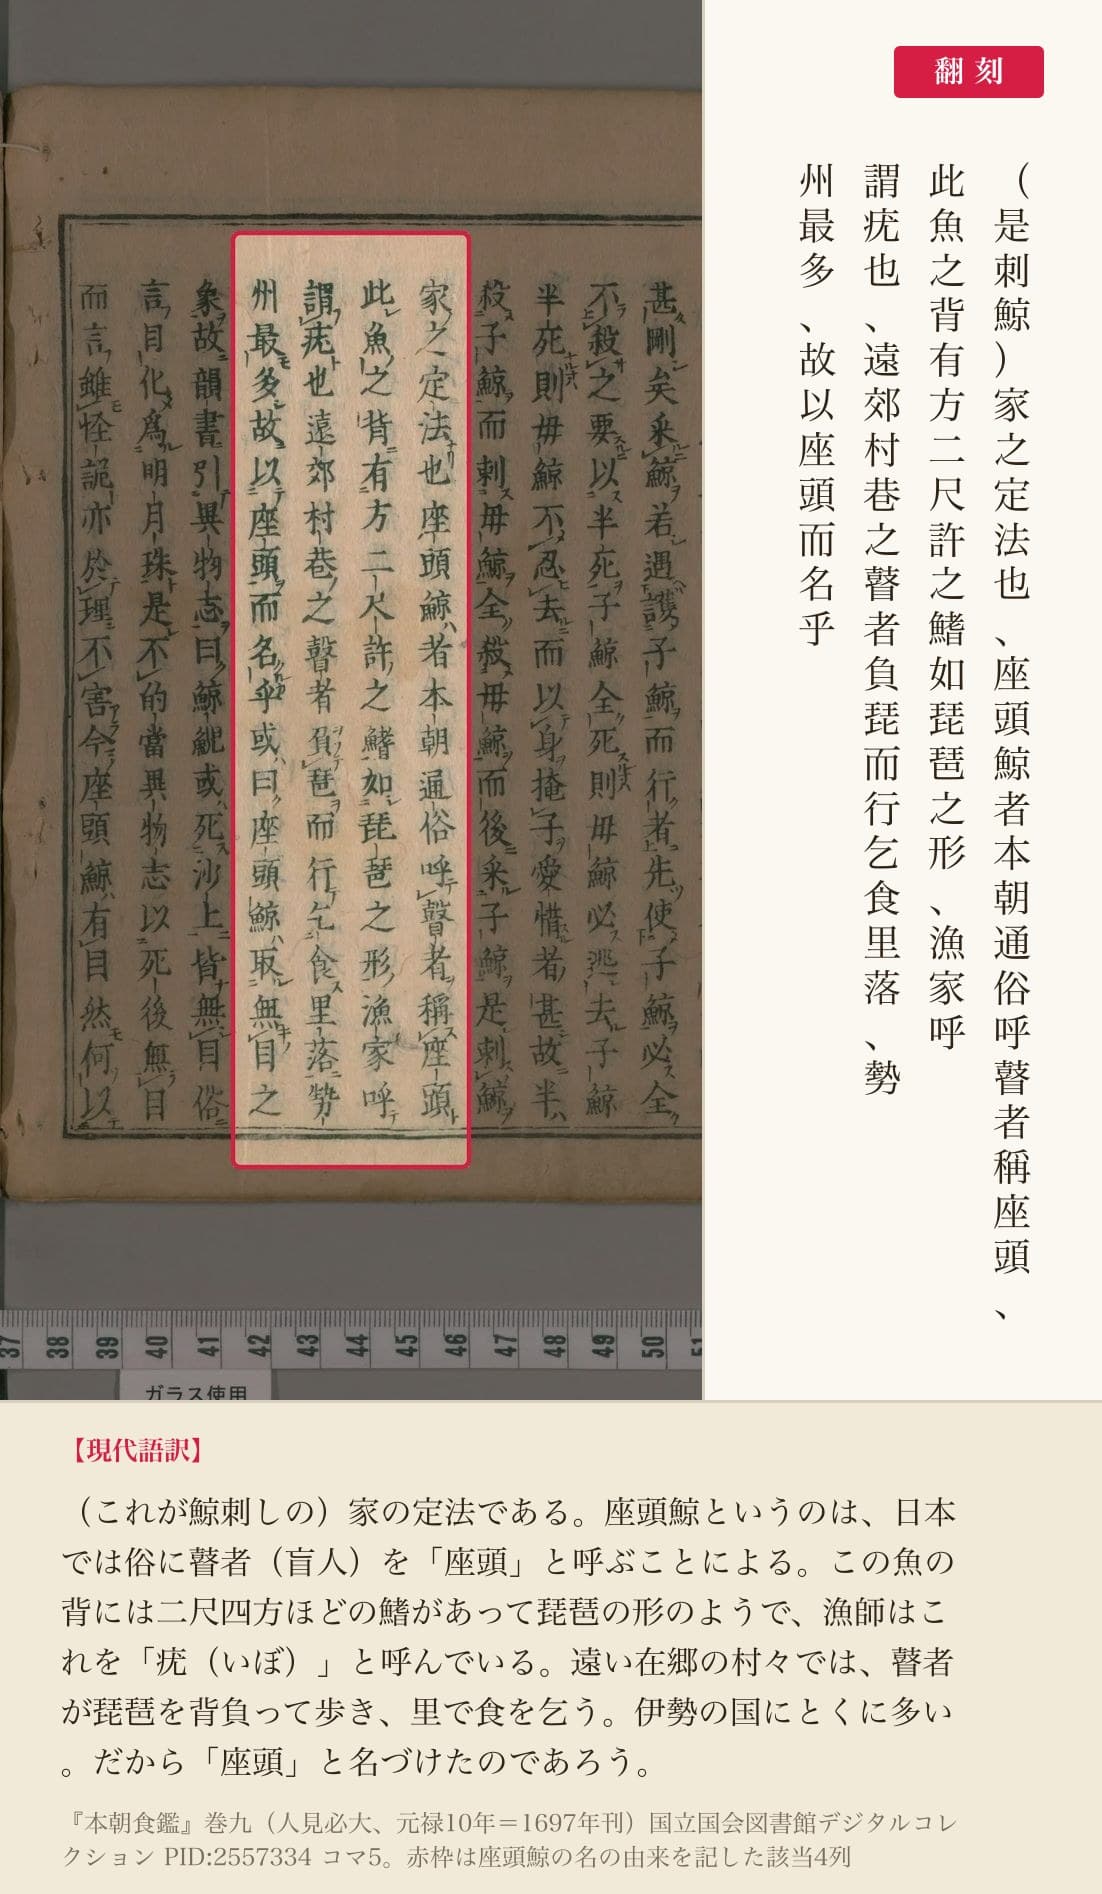 甚剛矣采鯨若遇護子鯨而行者先使子鯨必全
不殺之要以半死子鯨全死則毋鯨必逃去子鯨
半死則毋鯨不忍去而以身掩子愛惜者甚故半
殺子鯨而刺毋鯨全殺毋鯨而後采子鯨是刺鯨
家之定法也座頭鯨者本朝通俗呼瞽者稱座頭
此魚之背有方二尺許之鰭如琵琶之形漁家呼
謂疣也遠郊村巷之瞽者負琶而行乞食里落勢
州最多故以座頭而名乎或曰座頭鯨取無目之
象故韻書引異物志曰鯨鯢或死沙上皆無目俗
言目化爲明月珠是不的當異物志以死後無目
而言雖怪詭亦於理不害今座頭鯨有目然何以
37 38 39 40 41 42 43 44 45 46 47 48 49 50 51
ガラス使用
翻刻
（是刺鯨）家之定法也、座頭鯨者本朝通俗呼瞽者稱座頭、
此魚之背有方二尺許之鰭如琵琶之形、漁家呼
謂疣也、遠郊村巷之瞽者負琵而行乞食里落、勢
州最多、故以座頭而名乎
【現代語訳】
（これが鯨刺しの）家の定法である。座頭鯨というのは、日本
では俗に瞽者（盲人）を「座頭」と呼ぶことによる。この魚の
背には二尺四方ほどの鰭があって琵琶の形のようで、漁師はこ
れを「疣（いぼ）」と呼んでいる。遠い在郷の村々では、瞽者
が琵琶を背負って歩き、里で食を乞う。伊勢の国にとくに多い
。だから「座頭」と名づけたのであろう。
『本朝食鑑』巻九（人見必大、元禄10年＝1697年刊）国立国会図書館デジタルコレ
クション PID:2557334 コマ5。赤枠は座頭鯨の名の由来を記した該当4列